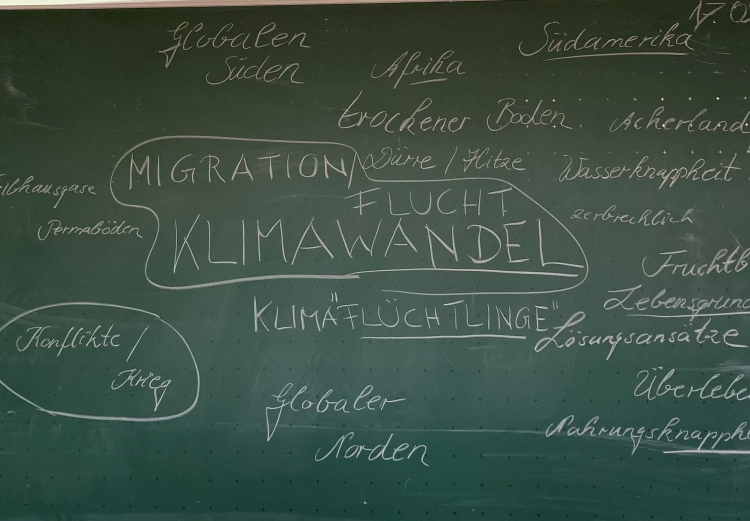 17.0
Globalen
Süden
Afrika
Südamerika
trockener Boden
Ackerland
MIGRATION/
Dürre / Hitze
Wasserknappheit
eibhausgase
FLUCHT
zerbrechlich
Permaböden
KLIMAWANDEL
Fruchtb
Lebensgrund
KLIMA"FLÜCHTLINGE"
Lösungsansätze
Konflikte /
Krieg
Globaler
Norden
Überlebe
Nahrungsknapphe